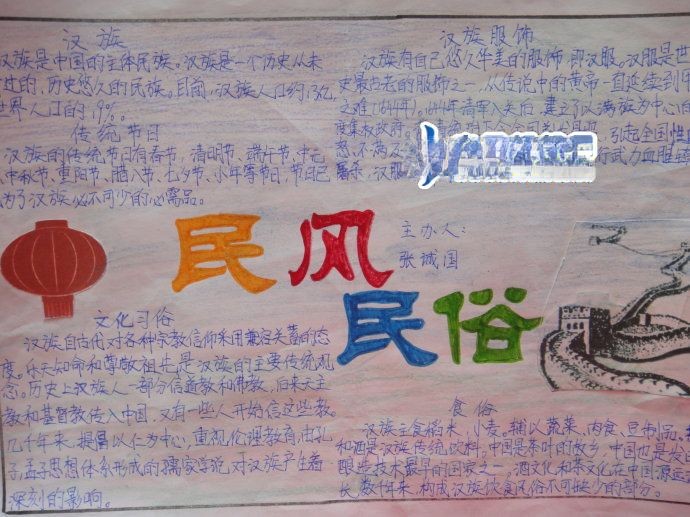 汉族
汉族是中国的主体民族。汉族是一个历史从未
过的,历史悠久的民族。目前,汉族人口约13亿,
世界人口的19%。
传统节日
汉族的传统节日有春节,清明节、端午节、中元
中秋节、重阳节、腊八节、七夕节、小年等节日,节日已
为了汉族必不可少的必需品。
汉族服饰
汉族有自己悠久华美的服饰,即汉服。汉服是世
史最古老的服饰之一,从传说中的黄帝一直延续到
之难(1644年)。1644年清军入关后,建立了以满族为中心的
度集权政府。
引起全国性
怒、不满
行武力血腥
汉服
民风
民俗
主办人:
张诚国
文化习俗
汉族自古代对各种宗教信仰采用兼容并蓄的态
度。乐天知命和尊敬祖先是汉族的主要传统观
念。历史上汉族人一部分信道教和佛教,后来天主
教和基督教传入中国,又有一些人开始信这些教。
几千年来,提倡以仁为中心,重视伦理教育,由孔
子,孟子思想体系形成的儒家学说,对汉族产生着
深刻的影响。
食俗
汉族主食稻米、小麦。辅以蔬菜、肉食、豆制品,
和酒是汉族传统饮料,中国是茶叶的故乡,中国也是发
酿造技术最早的国家之一,酒文化和茶文化在中国源远
长,数千年来,构成汉族饮食风俗不可缺少的部分。